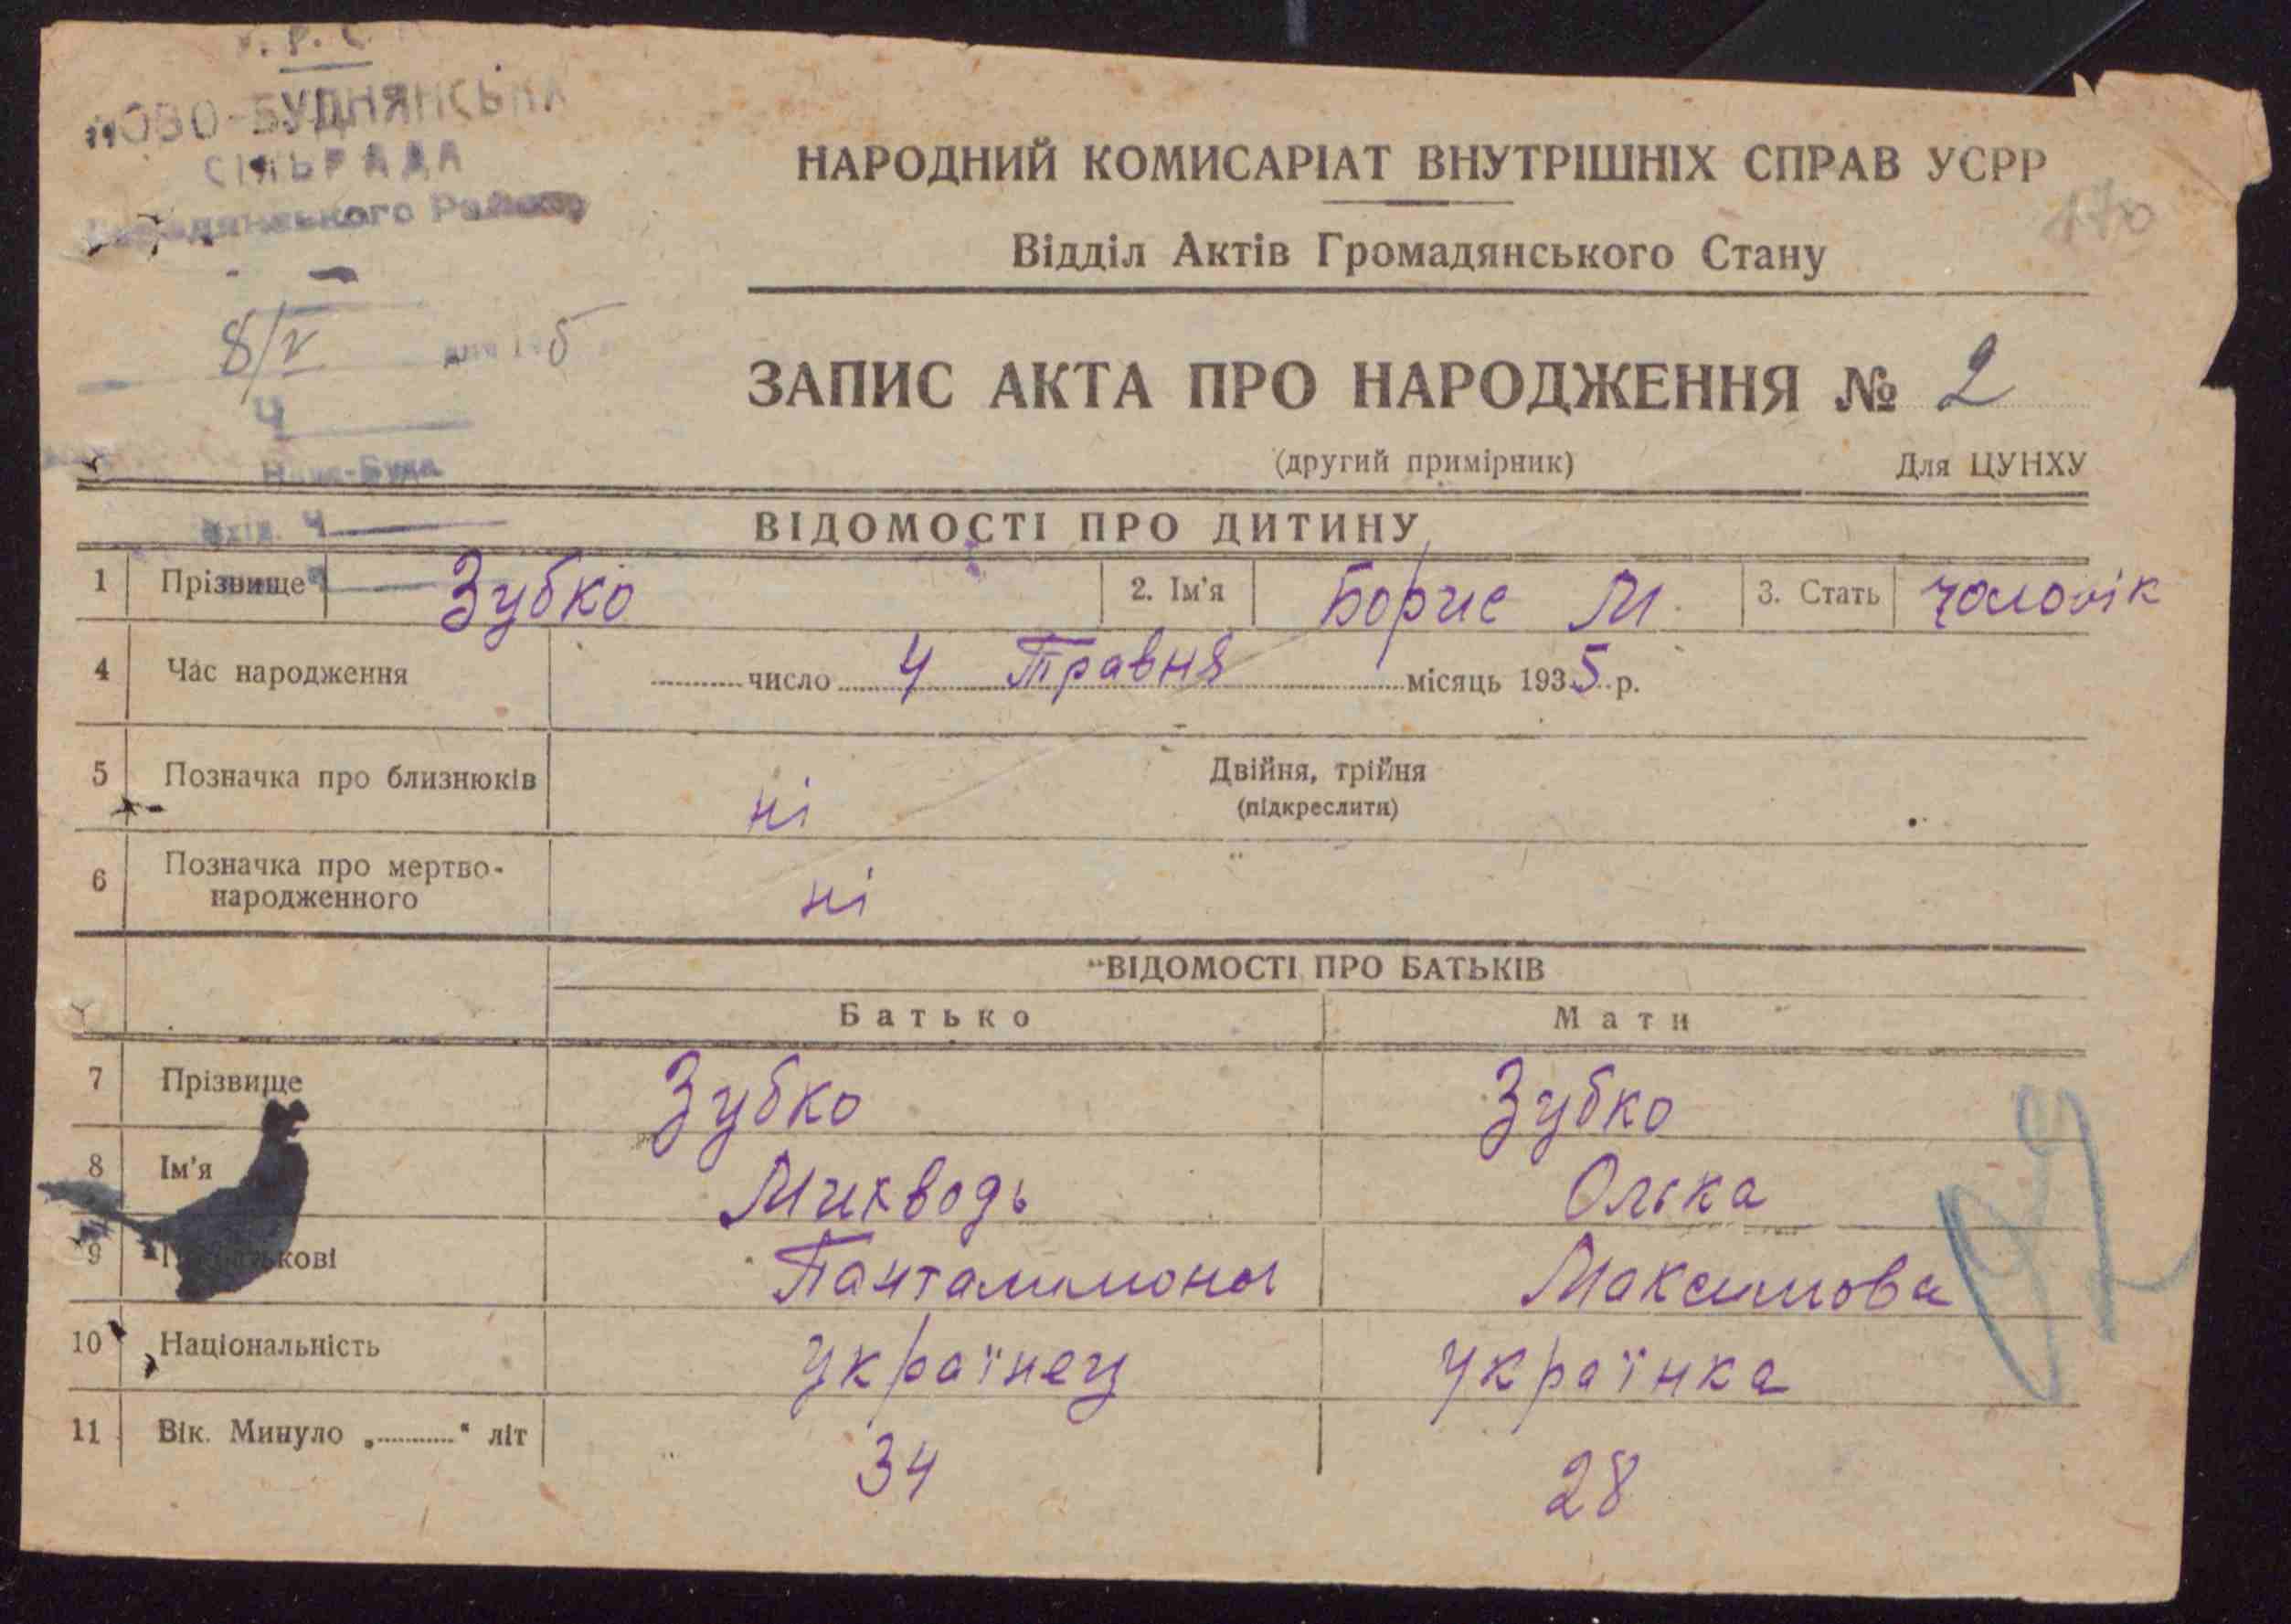 НОВО-БУДНЯНСЬКА
СІЛЬРАДА
Району
8/V дня 5
Ч
Нова-Буда
Ч
НАРОДНИЙ КОМИСАРІАТ ВНУТРІШНІХ СПРАВ УСРР
170
Відділ Актів Громадянського Стану
ЗАПИС АКТА ПРО НАРОДЖЕННЯ № 2
(другий примірник) Для ЦУНХУ
ВІДОМОСТІ ПРО ДИТИНУ
1 Прізвище Зубко 2. Ім'я Борис М. 3. Стать чоловік
4 Час народження число 4 Травня місяць 1935 р.
5 Позначка про близнюків ні Двійня, трійня
(підкреслити)
6 Позначка про мертво-
народженного ні
ВІДОМОСТІ ПРО БАТЬКІВ
Батько Мати
7 Прізвище Зубко Зубко
8 Ім'я Олька
9 кові Максимова
10 Національність українец українка
11 Вік. Минуло „ “ літ 34 28